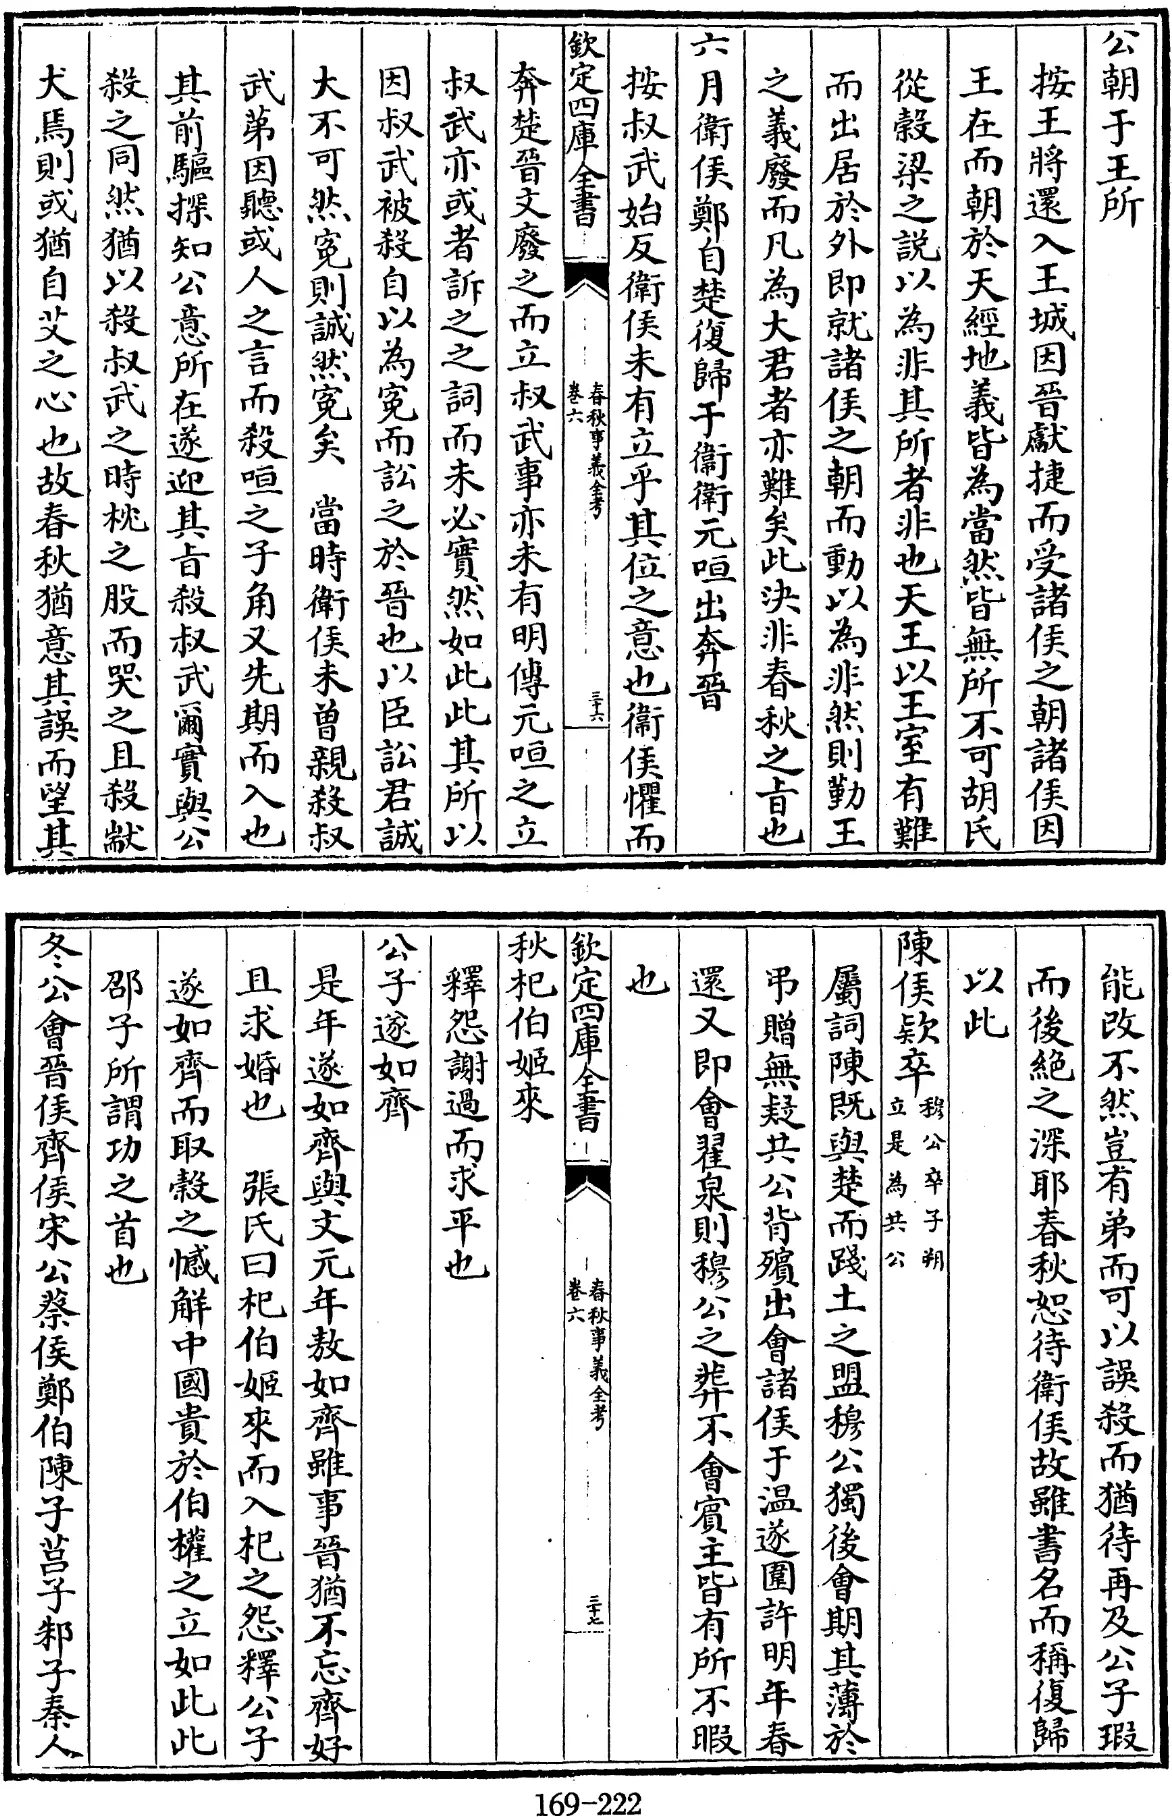 公朝于王所
按王將還入王城因晉獻捷而受諸侯之朝諸侯因
王在而朝於天經地義皆為當然皆無所不可胡氏
從穀梁之説以為非其所者非也天王以王室有難
而出居於外即就諸侯之朝而動以為非然則勤王
之義廢而凡為大君者亦難矣此決非春秋之㫖也
六月衛侯鄭自楚復歸于衛衛元咺出奔晉
按叔武始反衛侯未有立乎其位之意也衛侯懼而
欽定四庫全書
春秋事義全考
卷六
三十六
奔楚晉文廢之而立叔武事亦未有明傳元咺之立
叔武亦或者訴之之詞而未必實然如此此其所以
因叔武被殺自以為寃而訟之於晉也以臣訟君誠
大不可然寃則誠然寃矣　當時衛侯未曾親殺叔
武第因聽或人之言而殺咺之子角又先期而入也
其前驅探知公意所在遂迎其㫖殺叔武爾實與公
殺之同然猶以殺叔武之時枕之股而哭之且殺歂
犬焉則或猶自艾之心也故春秋猶意其誤而望其
能改不然豈有弟而可以誤殺而猶待再及公子瑕
而後絶之深耶春秋恕待衛侯故雖書名而稱復歸
以此
陳侯欵卒穆公卒子朔立是為共公
屬詞陳既與楚而踐土之盟穆公獨後會期其薄於
弔贈無疑共公背殯出會諸侯于温遂圍許明年春
還又即會翟泉則穆公之葬不會賓主皆有所不暇
也
欽定四庫全書
春秋事義全考
卷六
三十七
秋杞伯姬來
釋怨謝過而求平也
公子遂如齊
是年遂如齊與文元年敖如齊雖事晉猶不忘齊好
且求婚也　張氏曰杞伯姬來而入杞之怨釋公子
遂如齊而取穀之憾解中國貴於伯權之立如此此
邵子所謂功之首也
冬公會晉侯齊侯宋公蔡侯鄭伯陳子莒子邾子秦人
169-222